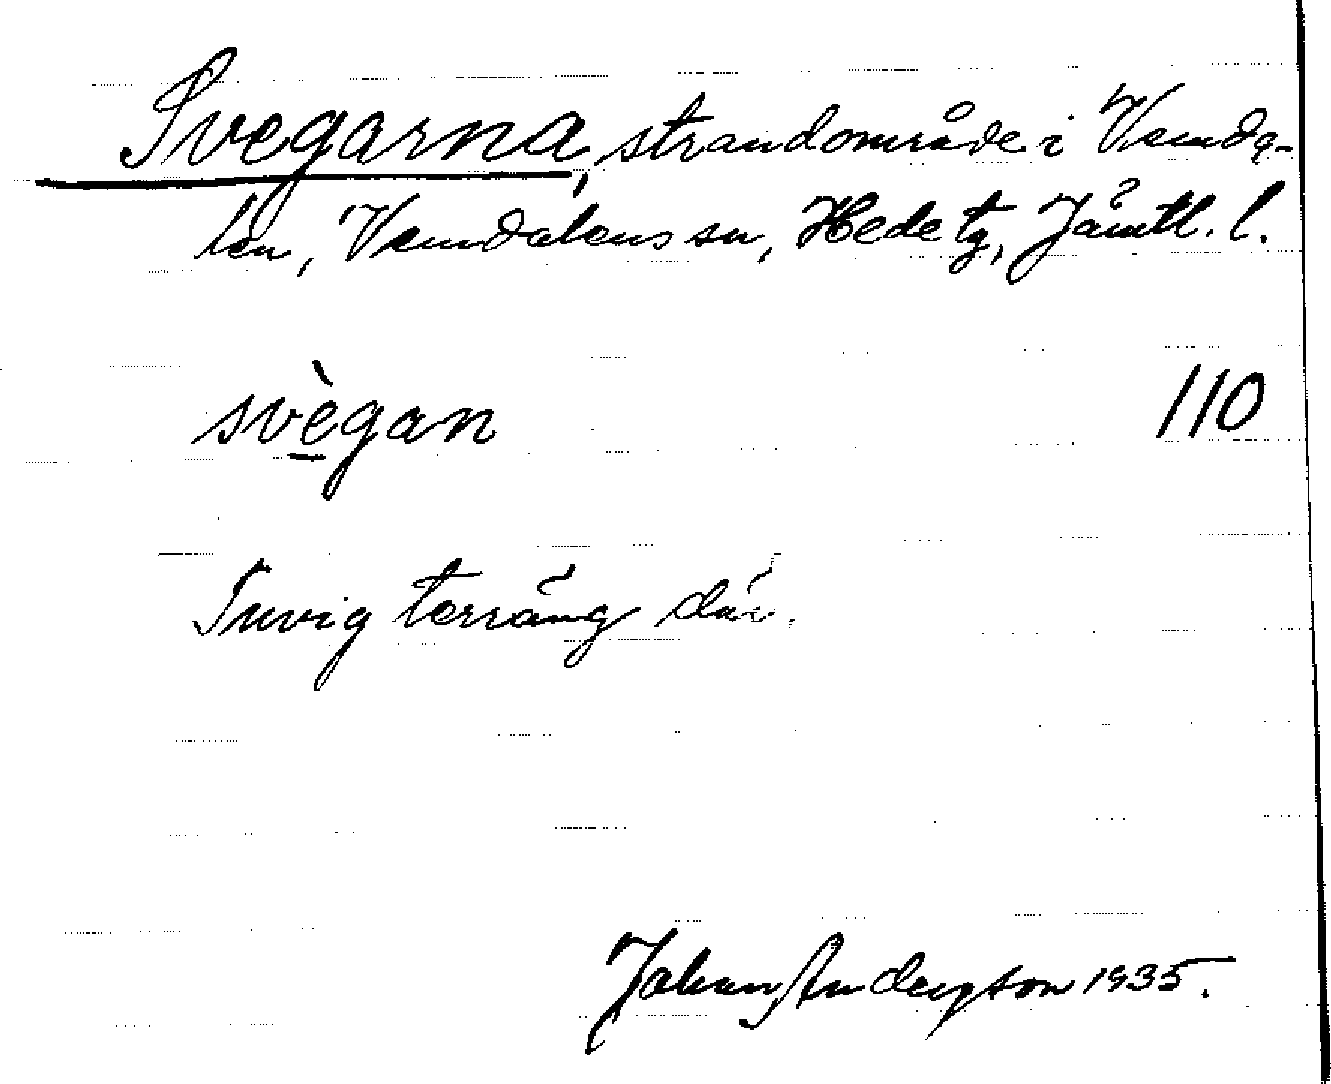 Svegarna, strandområde i Vemda-
len, Vemdalens sn, Hede tg, Jämtl. l.
svègan 110
Tuvig terräng där.
Johan Anderson 1935.